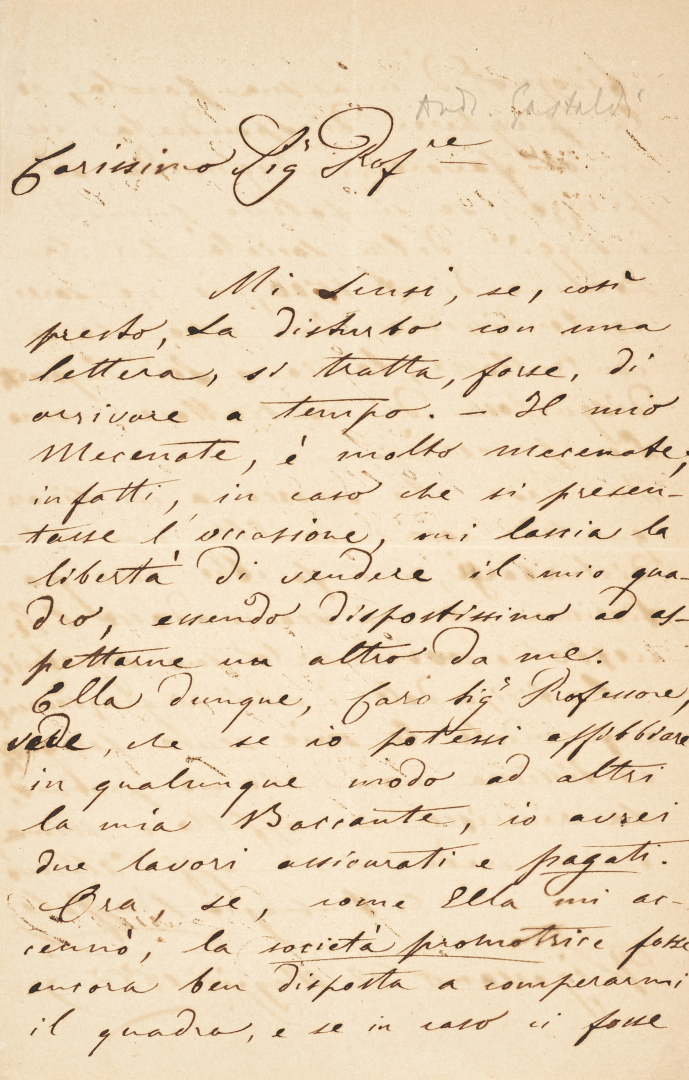 Andr. Gastaldi
Carissimo Sigr Profre
Mi scusi, se, così
presto, La disturbo con una
lettera, si tratta, forse, di
arrivare a tempo. – Il mio
Mecenate, è molto mecenate;
infatti, in caso che si presen-
tasse l'occasione, mi lascia la
libertà di vendere il mio qua-
dro, essendo dispostissimo ad as-
pettarne un altro da me.
Ella dunque, Caro Sigr Professore,
vede, che se io potessi affibbiare
in qualunque modo ad altri
la mia Baccante, io avrei
due lavori assicurati e pagati.
Ora, se, come Ella mi ac-
cennò, la società promotrice fosse
ancora ben disposta a comperarmi
il quadra, e se in caso ci fosse